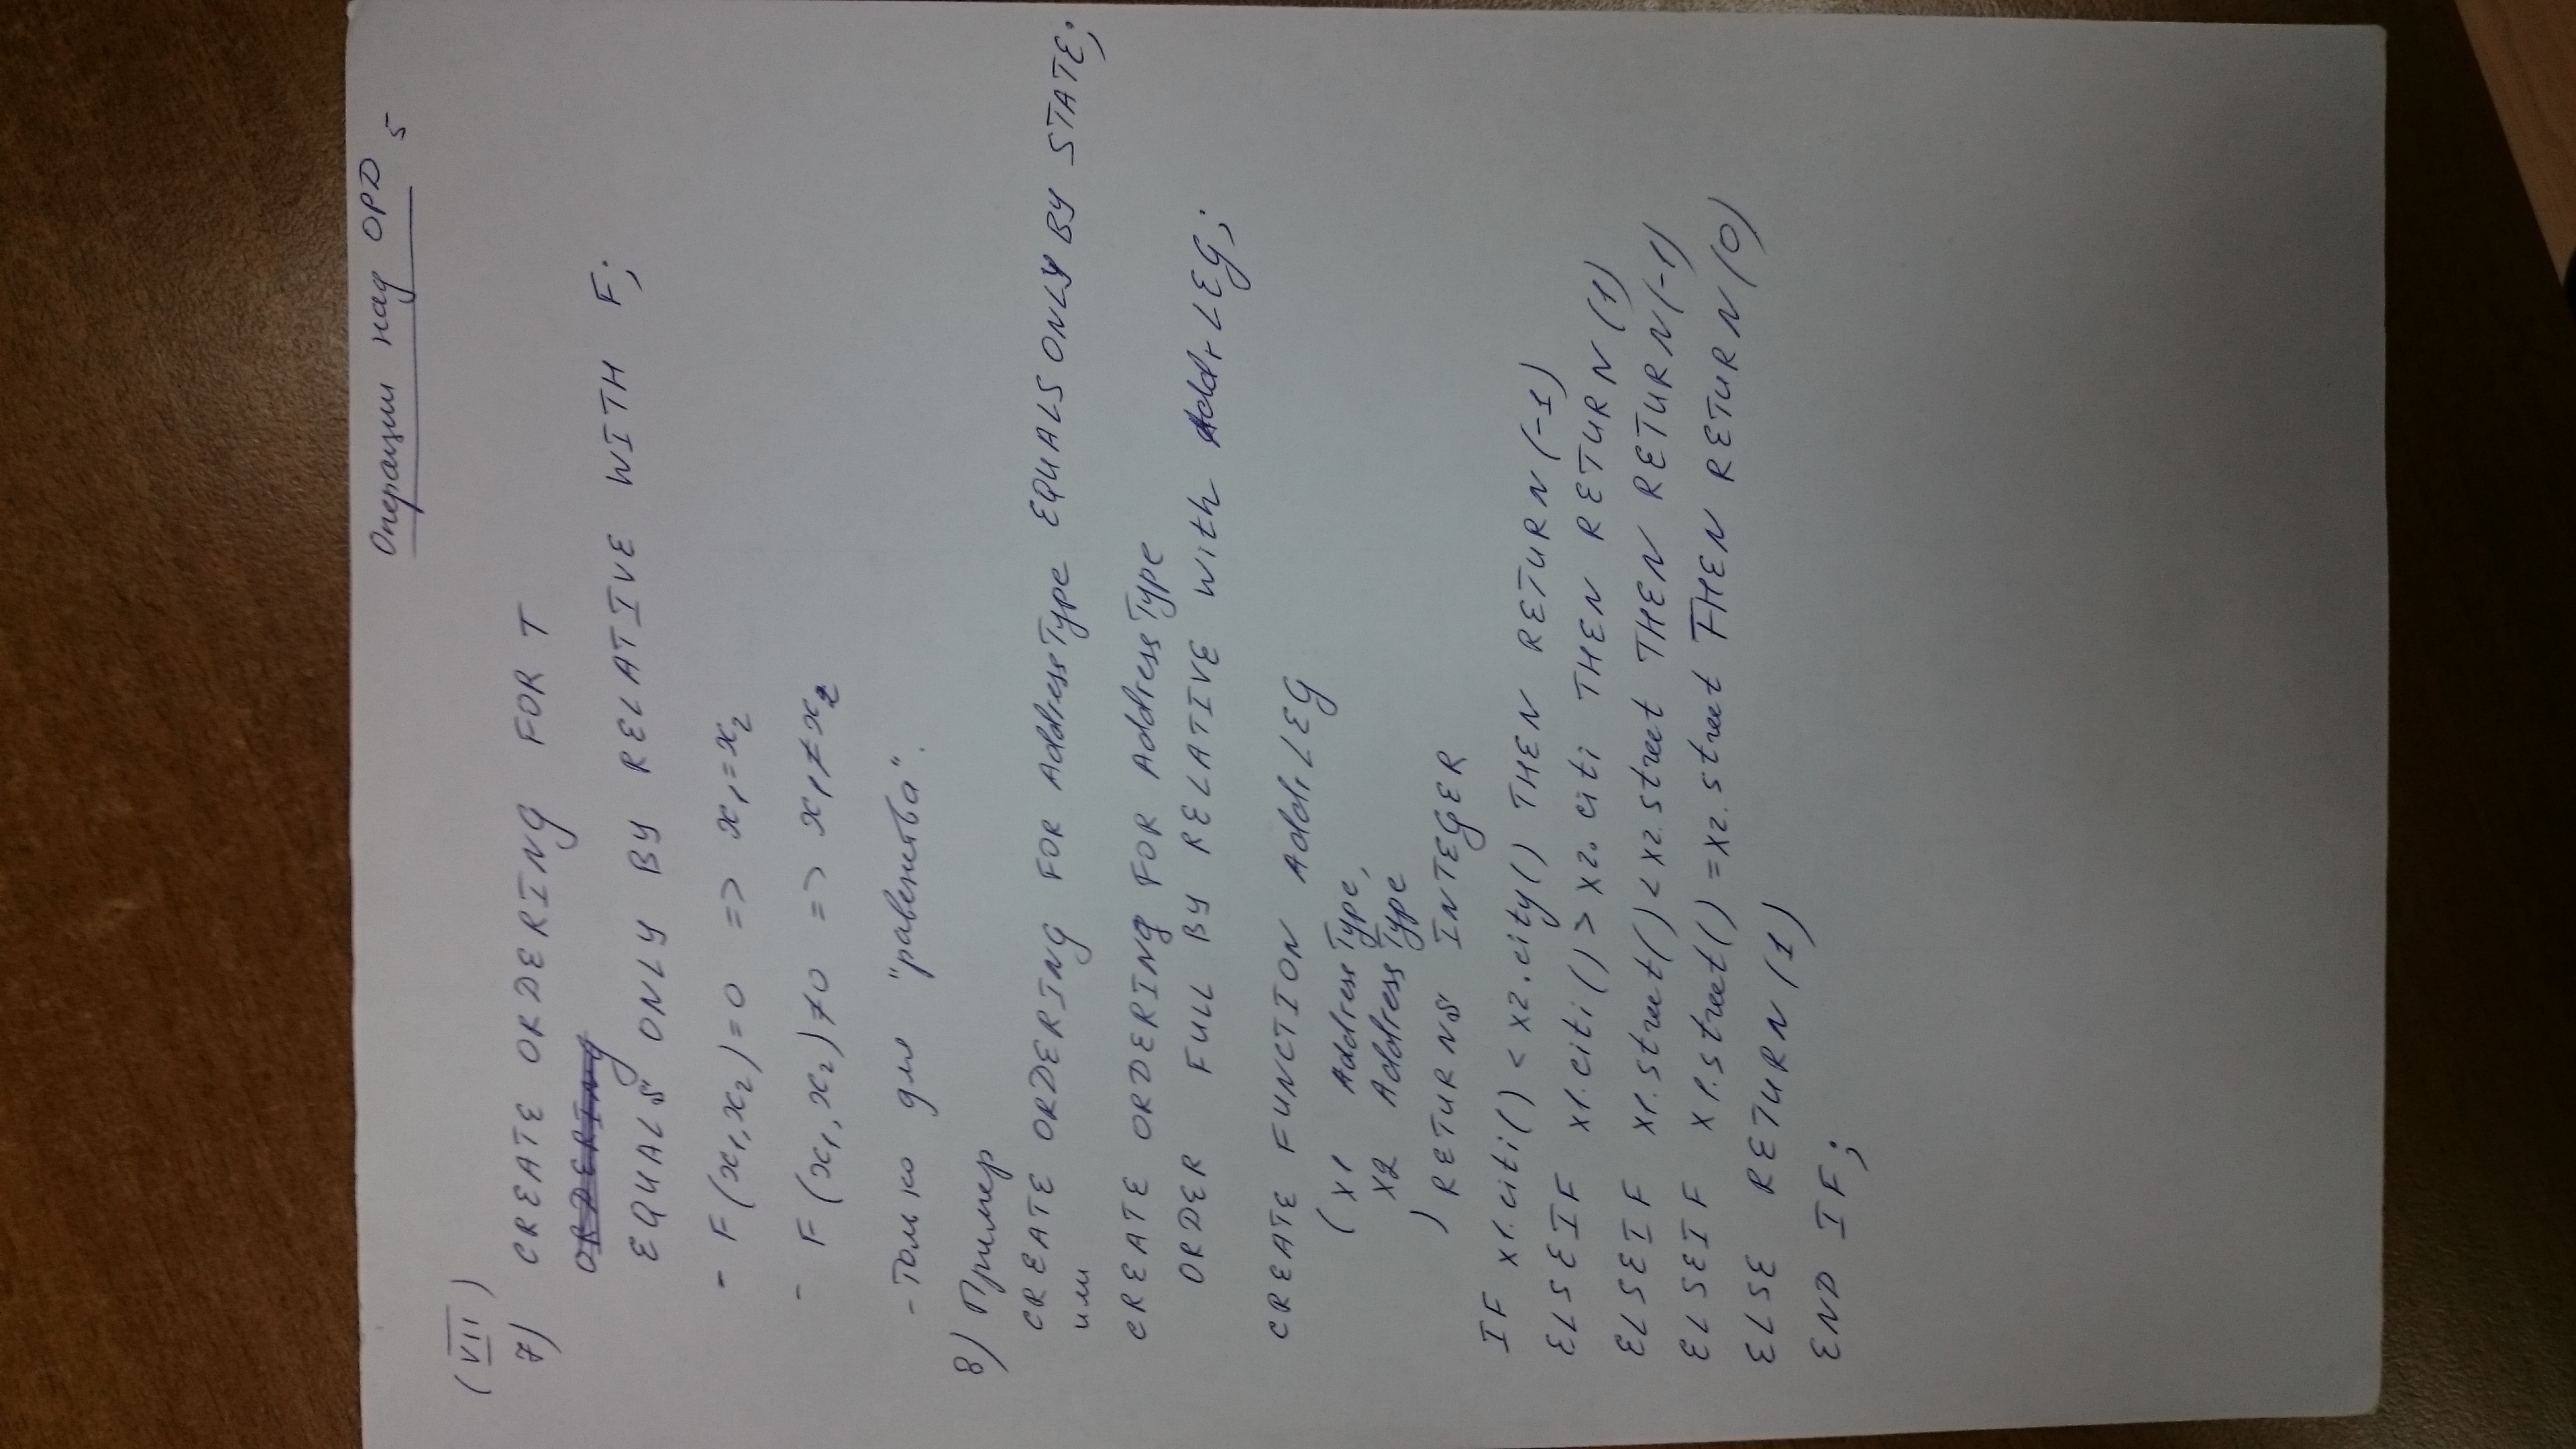 Операции над ОРД 5
(VII)
7) CREATE ORDERING FOR T
ORDERING
EQUALS ONLY BY RELATIVE WITH F;
- F(x1,x2)=0 => x1=x2
- F(x1,x2)≠0 => x1≠x2
- только для "равенства".
8) Пример
CREATE ORDERING FOR AddressType EQUALS ONLY BY STATE;
или
CREATE ORDERING FOR AddressType
ORDER FULL BY RELATIVE with AddrLEG;
CREATE FUNCTION AddrLEG
(x1 AddressType,
x2 AddressType
) RETURNS INTEGER
IF x1.citi() < x2.city() THEN RETURN(-1)
ELSEIF x1.citi() > x2.citi THEN RETURN(1)
ELSEIF x1.street() < x2.street THEN RETURN(-1)
ELSEIF x1.street() = x2.street THEN RETURN(0)
ELSE RETURN(1)
END IF;